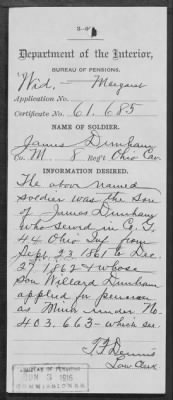 3-
Department of the Interior,
BUREAU OF PENSIONS.
Wid, — Margaret
Application No.
Certificate No. 61.685
NAME OF SOLDIER.
James Dunham
Co. M. 8 Reg't Ohio Cav.
INFORMATION DESIRED.
The above named
soldier was the son
of James Dunham
who served in Co. G.
44 Ohio Inf from
Sept. 23 1861 to Dec.
27 1862 & whose
son Willard Dunham
applied in pension
as Minor under No.
403.663 - which see.
Dennis
Law Clerk
BUREAU OF PENSIONS
JUN 3 1916
COMMISSIONER